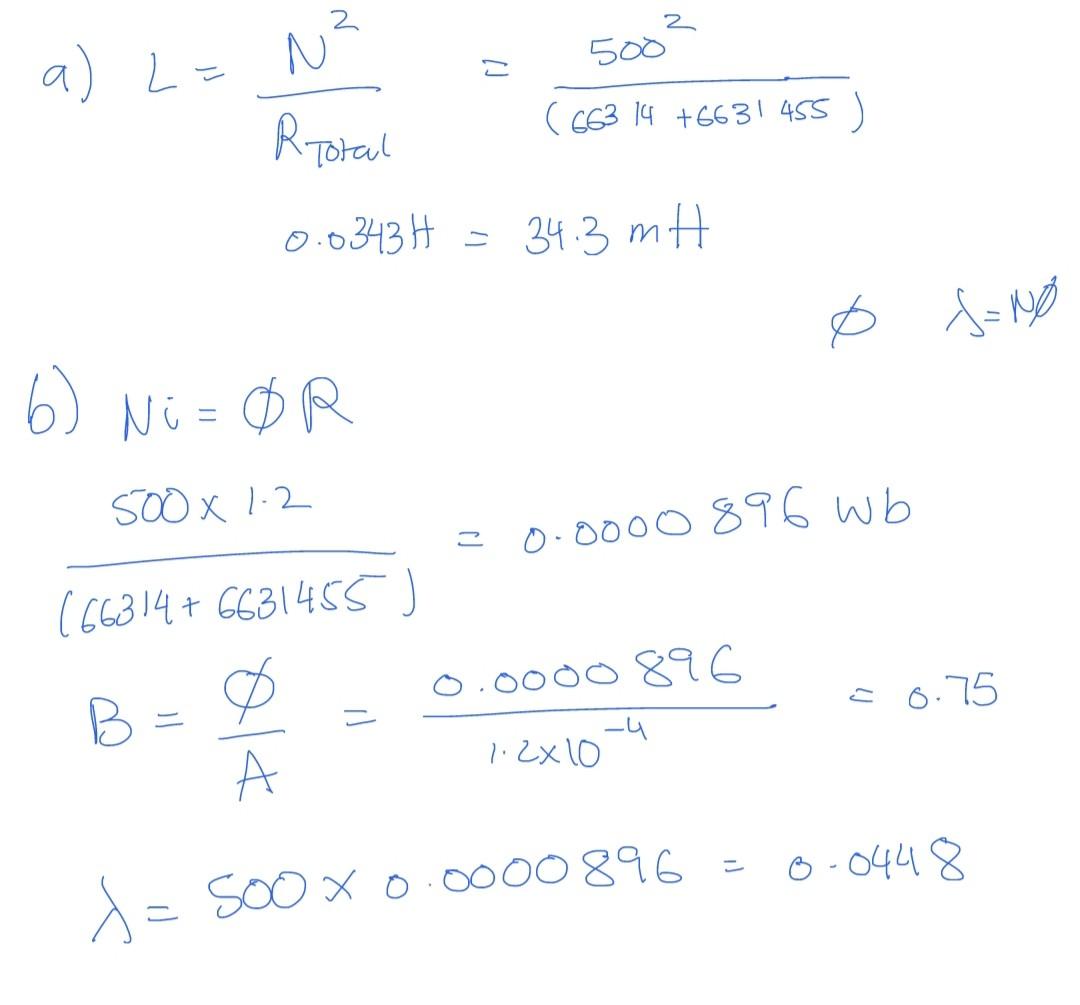 a) L = N² / R_Total = 500² / (663 14 + 6631 455)
0.0343H = 34.3 mH
ϕ λ = Nϕ
b) Ni = ϕR
500 x 1.2 / (66314 + 6631455) = 0.0000896 wb
B = ϕ / A = 0.0000896 / 1.2x10⁻⁴ = 0.75
λ = 500 x 0.0000896 = 0.0448